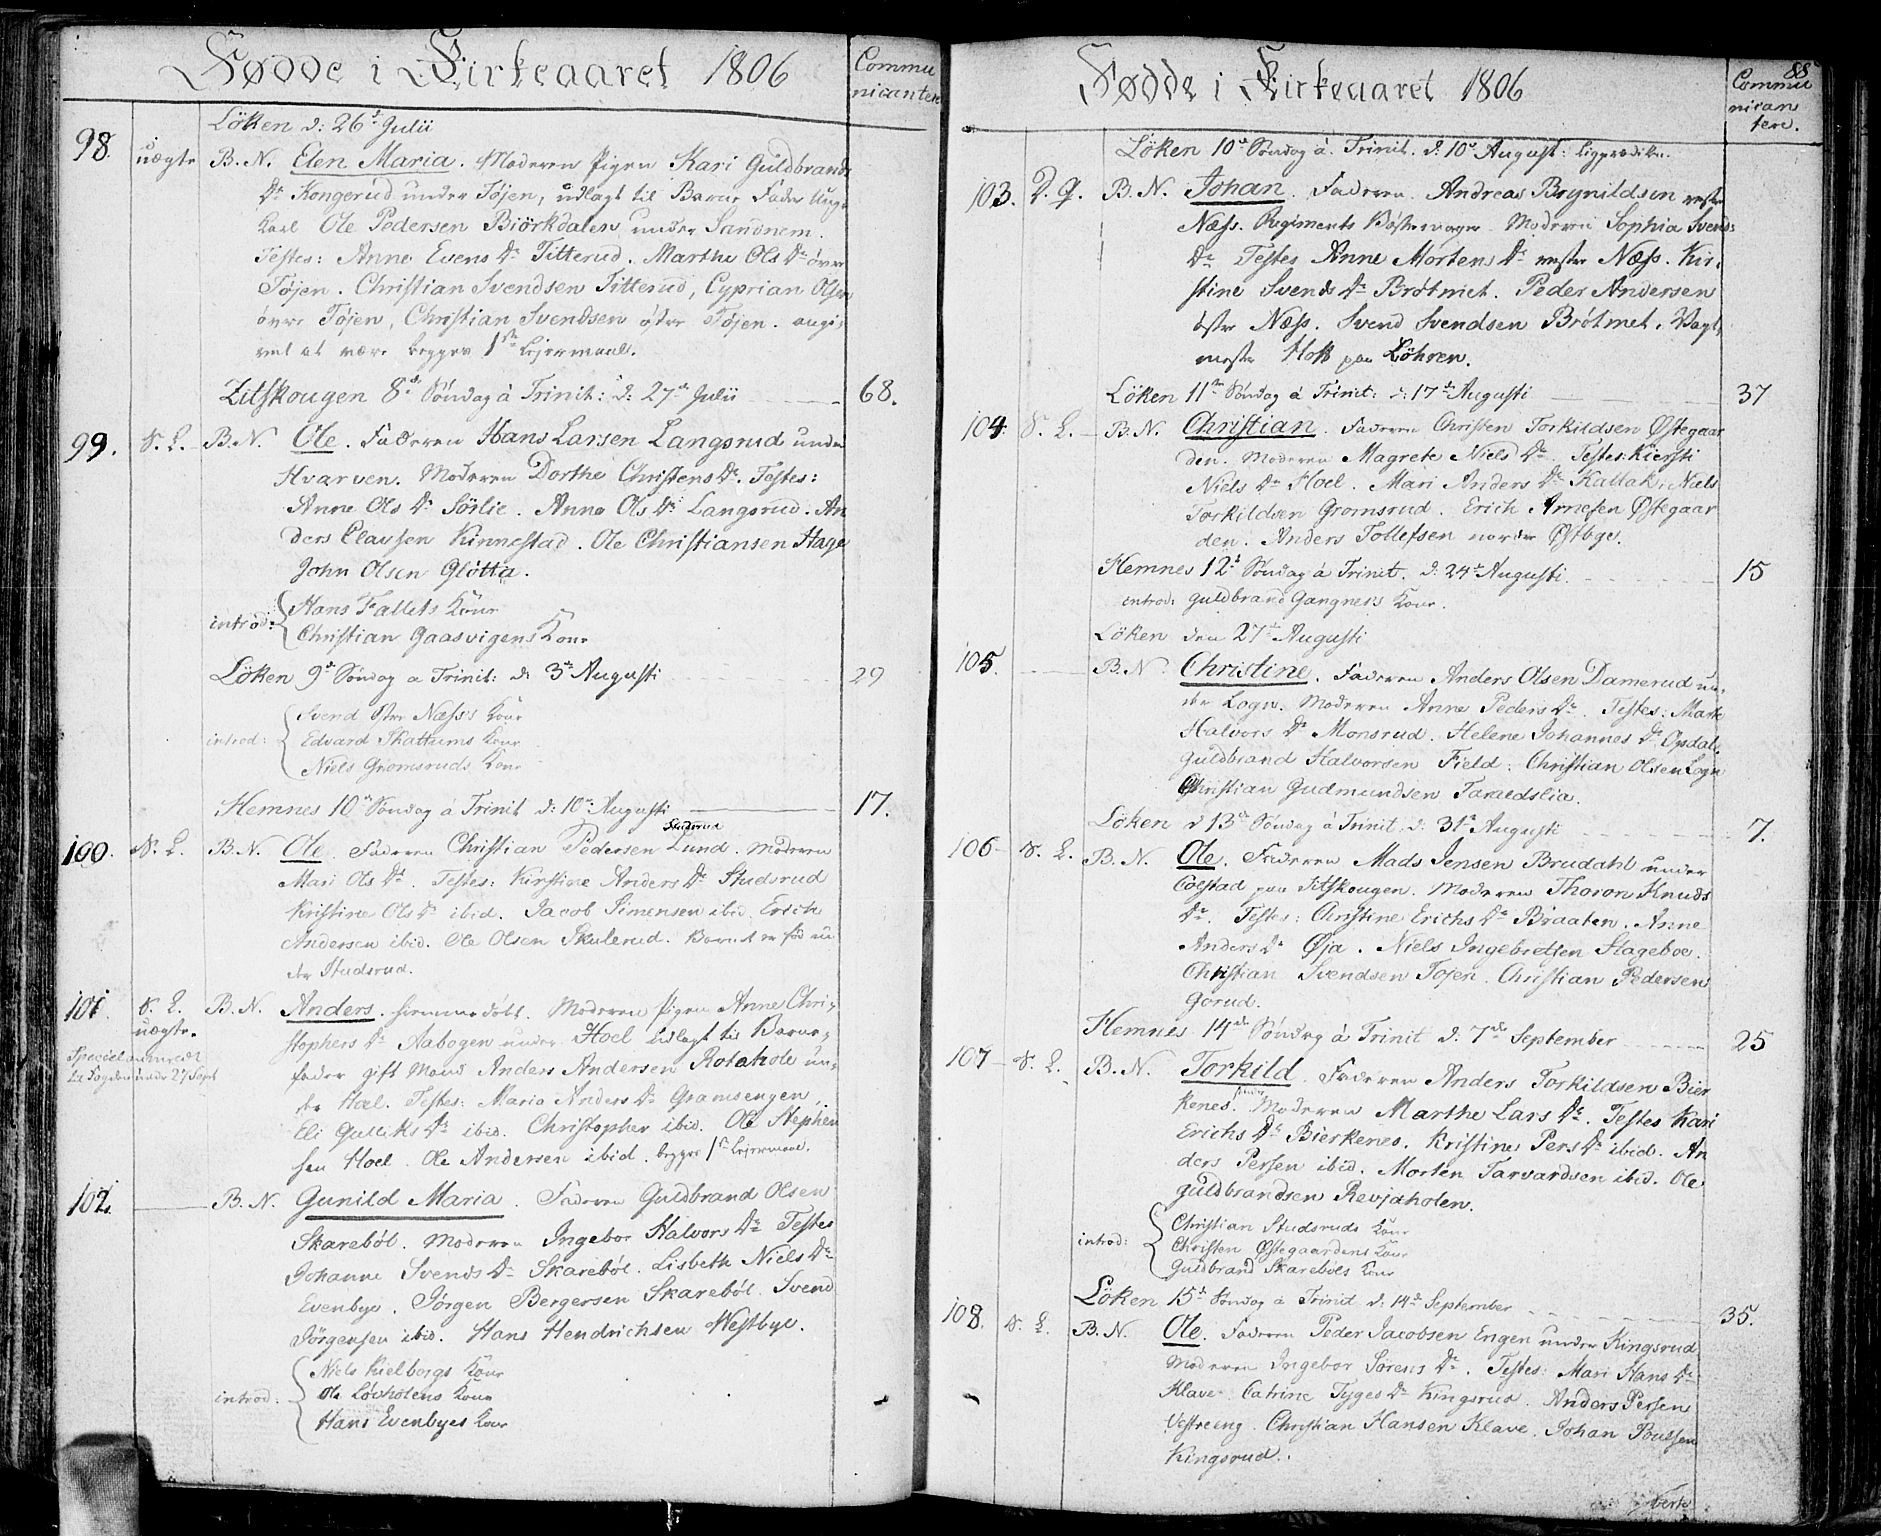 Fødde i Kirkeaaret 1806
Commu
nicantere
Löken d: 26de Julii
98. uægte B. N. Elen Maria. Moderen Pigen Kari Guldbrands
Dr Kongerud under Töjen, udlagt til Barne Fader Unge
Karl Ole Pedersen Biörkdalen under Sandnem.
Testes: Anne Evens Dr Titterud. Marthe Ols Dr övre
Töjen. Christian Svendsen Titterud, Cyprian Olsen
övre Töjen, Christian Svendsen östre Töjen. angi,
vet at være begges 1ste Lejermaal.
Zitskougen 8de Söndag à Trinit: d: 27de Julii 68.
99. S. L. B. N. Ole. Faderen Hans Larsen Langsrud under
Hvarven. Moderen Dorthe Christens Dr. Testes:
Anne Ols Dr Sörlie. Anne Ols Dr Langsrud. An
ders Clausen Kinnestad. Ole Christiansen Hage
John Olsen Glötta.
introd: Hans Fallets Kone
Christian Gaasvigens Kone
Löken 9de Söndag a Trinit: d: 3de Augusti 29
introd: Svend östre Næss's Kone
Edvard Skattums Kone
Niels Gromsruds Kone
Hemnes 10de Söndag a Trinit d: 10de Augusti 17.
Studsrud
100. S. L. B. N. Ole. Faderen Christian Pedersen Lund. Moderen
Mari Ols Dr. Testes: Kirstine Anders Dr Studsrud
Kristine Ols Dr ibid. Jacob Simensen ibid. Erich
Andersen ibid. Ole Olsen Skulerud. Barnet er föd un
der Studsrud.
101. S. L. B. N. Anders. hiemmedöbt. Moderen pigen Anne Chri,
uægte. stophers Dr Aabogen under Hoel udlagt til Barne,
Speciel anmeldt
til Fogden under 27 Sept
fader gift Mand Anders Andersen Rotahole un,
der Hoel. Testes: Maria Anders Dr Gramsengen,
Eli Gulliks Dr ibid. Christopher ibid. Ole Stephen
sen Hoel. Ole Andersen ibid. begges 1ste Lejermaal.
102. B. N. Gunild Maria. Faderen Guldbrand Olsen
Skareböl. Moderen Ingebor Halvors Dr Testes
Johanne Svends Dr Skareböl. Lisbeth Niels Dr
Evenbye. Jörgen Bergersen Skareböl. Svend
Jörgensen ibid. Hans Hendrichsen Westbye.
introd: Niels Kielbergs Kone
Ole Lövholens Kone
Hans Evenbyes Kone
88
Fødde i Kirkeaaret 1806
Commu
nican
tere.
Löken 10de Söndag à Trinit. d: 10de August:
103. B. N. Johan. Faderen Andreas Brynildsen vestre
Næss. Regiments Moderen Sophia Svends
Dr Testes Anne Mortens Dr vestre Næss. Kir,
stine Svends Dr Brötmet. Peder Andersen
östre Næss. Svend Svendsen Brötmet. Vagt,
mester Holt paa Löhren.
Löken 11te Söndag à Trinit: d: 17de Augusti 37
104. S. L. B. N. Christian. Faderen Christen Torkildsen Østegaar
den. Moderen Magrete Niels Dr. Testes: Kiersti
Niels Dr Hoel. Mari Anders Dr Kallak. Niels
Torkildsen Gromsrud. Erich Arnesen Østegaar
den. Anders Tollefsen nordre Østbye.
Hemnes 12te Söndag à Trinit. d: 24de Augusti. 15
introd: Guldbrand Gangnes's Kone.
Löken den 27de Augusti
105. B. N. Christine. Faderen Anders Olsen Damerud un,
der Logn. Moderen Anne Peders Dr. Testes: Marte
Halvors Dr Monsrud. Helene Johannes Dr Opdal.
Guldbrand Halvorsen Field. Christian Olsen Logn
Christian Gudmundsen Taraldslia.
Löken d 13de Söndag à Trinit: d: 31te Augusti 7.
106 S. L. B. N. Ole. Faderen Mads Jensen Brudahl under
Colstad paa Sitskougen. Moderen Thoron Knuds
Dr. Testes: Christine Erichs Dr Braaten. Anne
Anders Dr Øja. Niels Ingebretsen Hageboe.
Christian Svendsen Tojen. Christian Pedersen
Gorud.
Hemnes 14de Söndag à Trinit d. 7de September 25
107 S. L. B. N. Torkild. Faderen Anders Torkildsen Bier
kenes. Moderen Marthe Lars Dr. Testes Kari
Erichs Dr Bierkenes. Kristine Pers Dr ibid. An
ders Persen ibid. Morten Tarvardsen ibid. Ole
Guldbrandsen Revjaholen.
introd: Christian Studsruds Kone
Christen Østegaardens Kone
Guldbrand Skareböls Kone
Löken 15de Söndag à Trinit d: 14de September 35.
108. S. L. B. N. Ole. Faderen Peder Jacobsen Engen under Kingsrud
Moderen Ingebor Sörens Dr. Testes: Mari Hans Dr
Klave. Catrine Tyges Dr Kingsrud. Anders Persen
Vestreeng. Christian Hansen Klave. Johan Poulsen
Kingsrud.